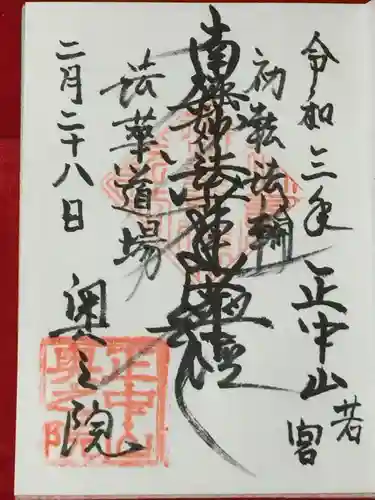 令和三年 正中山 若宮
初転法輪
南無妙法蓮華經
法華道場
二月二十八日 奥之院
正中山
奥之院